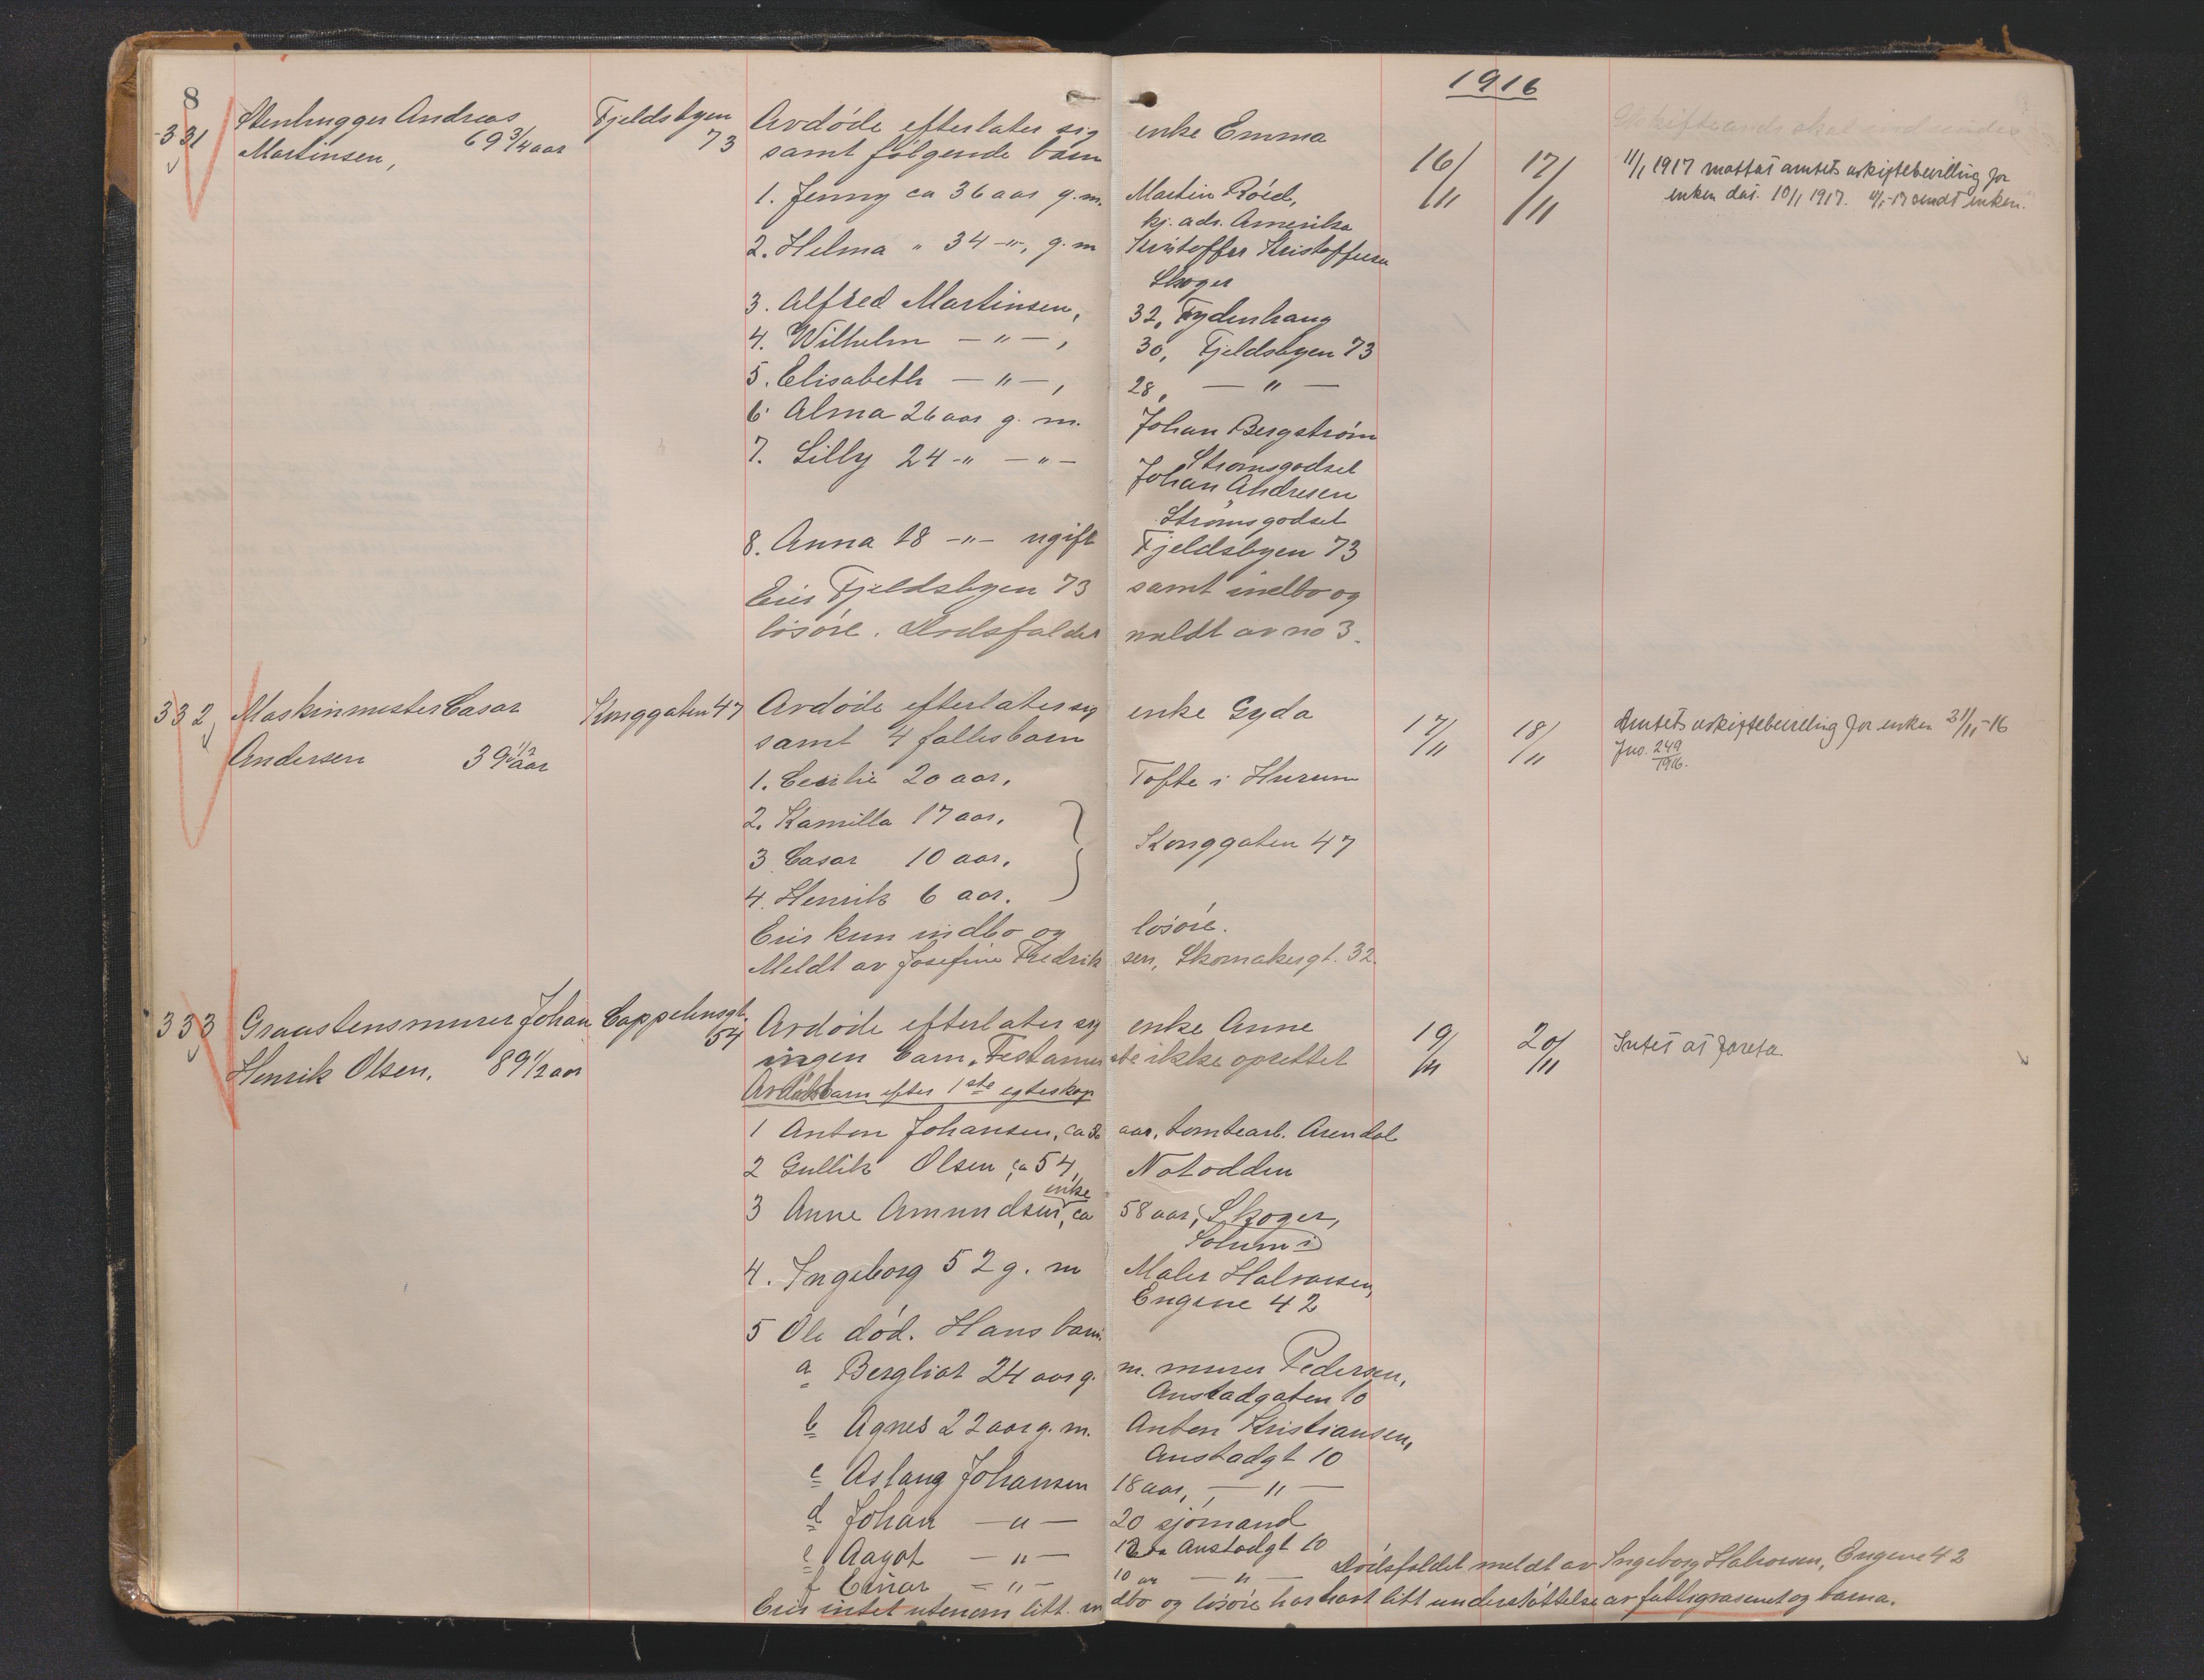 8
1916
331 Stenhugger Andreas Martinsen, 69 3/4 aar
Fjeldsbyen 73
Avdöde efterlater sig enke Emma
samt følgende barn
1. Jenny ca 36 aar g.m. Martin Röed,
kj. adr. Amerika
2. Helma " 34 -"-, g.m Kristoffer Kristoffersen
Skoger
3. Alfred Martinsen, 32, Fydenhaug
4. Wilhelm -"-, 30, Fjeldsbyen 73
5. Elisabeth -"-, 28, -"-
6. Alma 26 aar g. m. Johan Bergström
Strömsgodset
7. Lilly 24 -" -"- Johan Andresen
Strömsgodset
8. Anna 18 -"- ugift Fjeldsbyen 73
Eier Fjeldsbyen 73 samt indbo og
lösöre. Dödsfaldet meldt av no 3.
16/11 17/11
11/1 1917 mottat amtets uskiftebevilling for
enken dat. 10/1 1917. 11/1-17 sendt enken.
332 Maskinmester Casar
Andersen 39 1/2 aar
Konggaten 47
Avdöde efterlater sig enke Gyda
samt 4 fællesbarn
1. Cecilie 20 aar, Tofte i Hurum
2. Kamilla 17 aar.
3 Casar 10 aar. Konggaten 47
4. Henrik 6 aar.
Eier kun indbo og lösöre.
Meldt av Josefine Fredriksen, Skomakergt. 32.
17/11 18/11
Amtets uskiftebevilling for enken 21/11-16
Jno. 249/1916.
333 Graastensmurer Johan
Henrik Olsen. 89 1/2 aar
Cappelensgt. 54
Avdöde efterlater sig enke Anne
ingen barn. Testamente ikke oprettet
Avdödes barn efter 1ste egteskap
1 Anton Johansen, ca aar, tomtearb. Arendal
2 Gullik Olsen ca 54, Notodden
3 Anne Amundsen, enke ca 58 aar, Skoger,
Solum i
4. Ingeborg 52 g. m Maler Halvorsen,
Engene 42
5 Ole död. Hans barn
a Bergliot 24 aar g. m. murer Pedersen,
Austadgaten 10
b Agnes 22 aar g. m. Anton Kristiansen,
Austadgt 10
c Aslaug Johansen 18 aar, -"-
d Johan -"- 20 sjömand
e Aagot -"- 12 aar Austadgt 10
f Einar -"- 10 aar -"-
Dödsfaldet meldt av Ingeborg Halvorsen, Engene 42
Eier intet utenom litt indbo og lösöre har havt litt understöttelse av fattigvæsenet og barna.
19/11 20/11
Intet at foreta